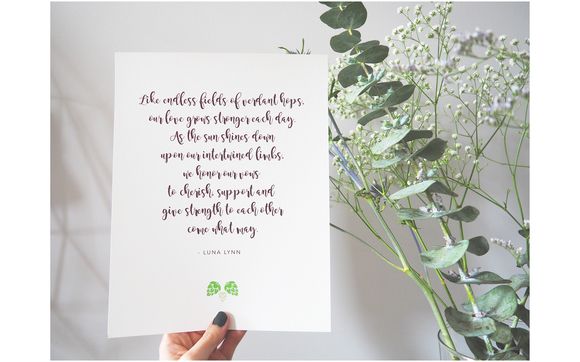 Like endless fields of verdant hops,
our love grows stronger each day.
As the sun shines down
upon our intertwined limbs,
we honor our vows
to cherish, support and
give strength to each other
come what may.
- LUNA LYNN